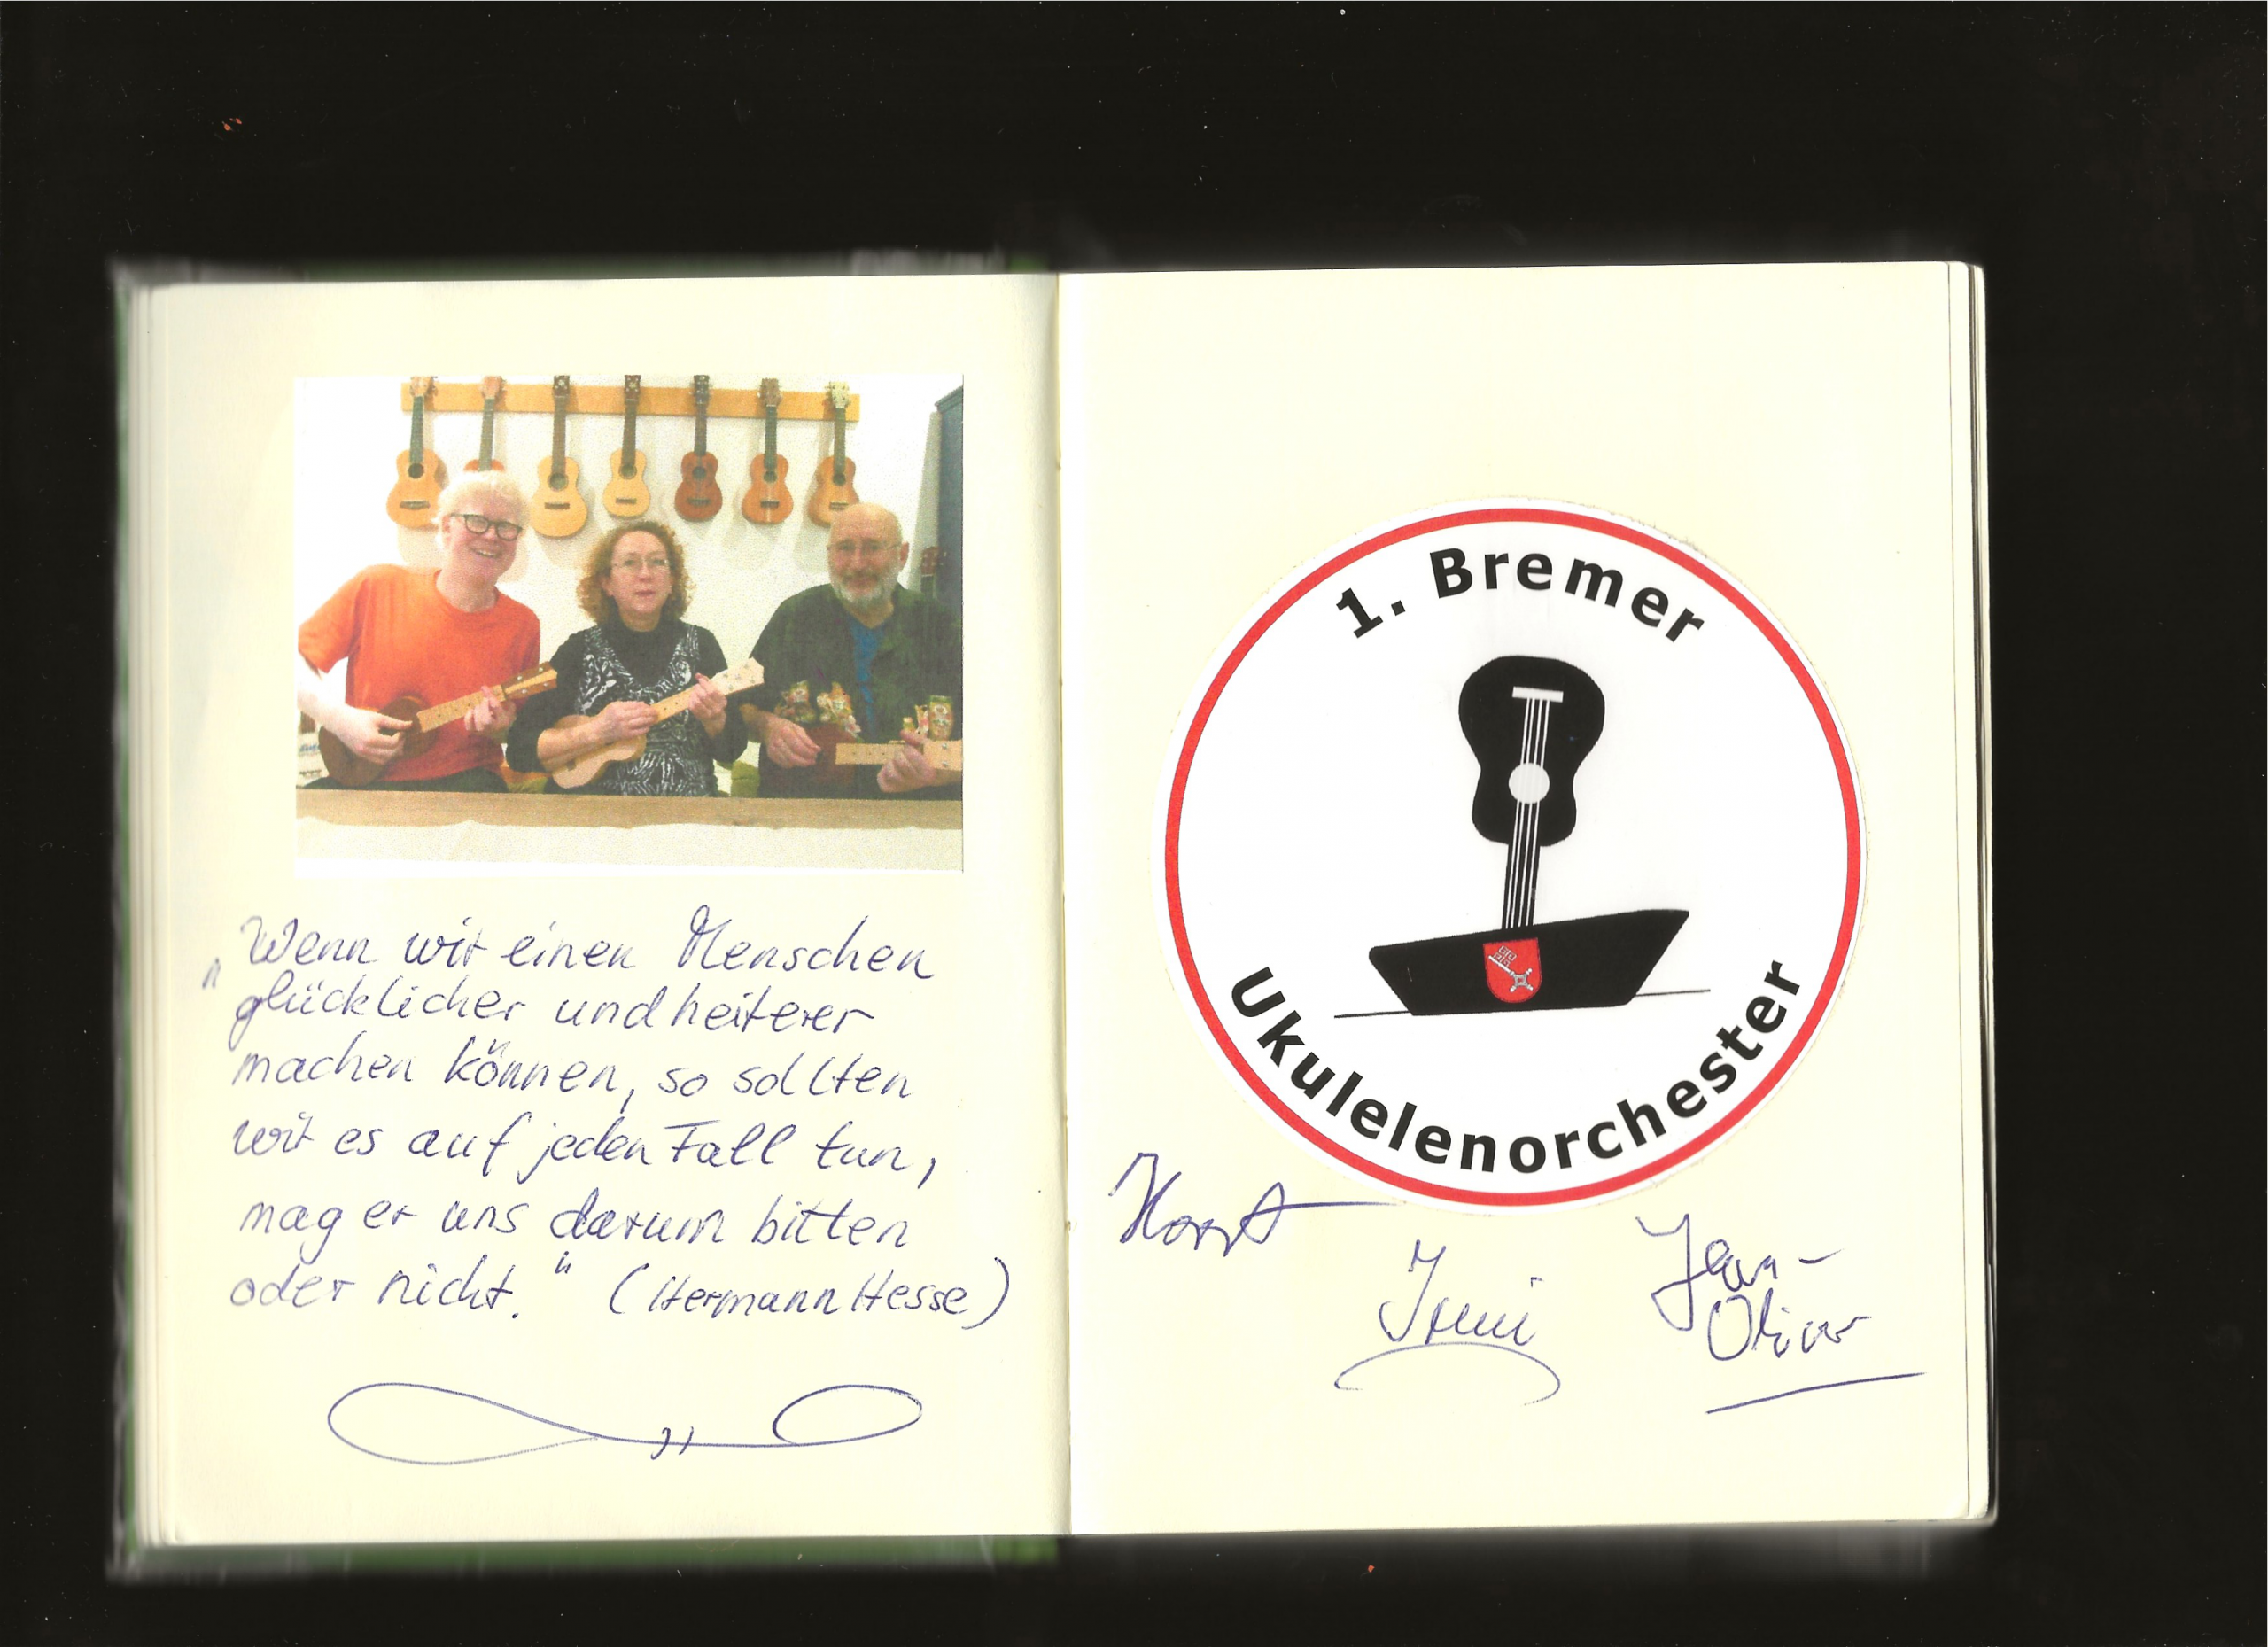 „Wenn wir einen Menschen
glücklicher und heiterer
machen können, so sollten
wir es auf jeden Fall tun,
mag er uns darum bitten
oder nicht." (Hermann Hesse)
1. Bremer
Ukulelenorchester
Horst
Irmi
Jan-
Oliver